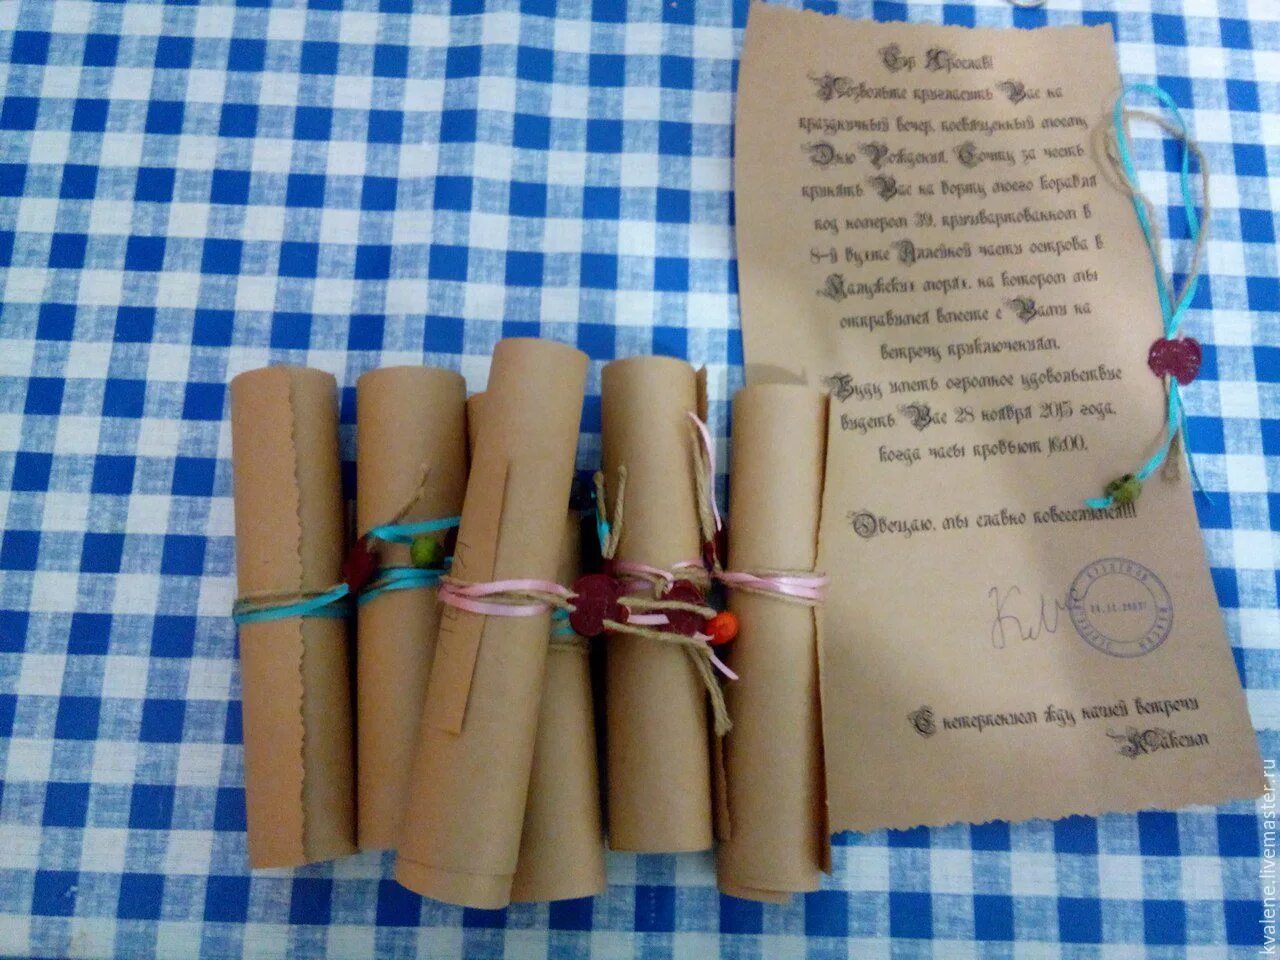 Сэр Ярослав!
Позвольте пригласить Вас на
праздничный вечер, посвященный моему
Дню Рождения. Сочту за честь
принять Вас на борту моего корабля
под номером 39, пришвартованном в
8-й бухте Аллейной части острова в
Калужских морях, на котором мы
отправимся вместе с Вами на
встречу приключениям.
Буду иметь огромное удовольствие
видеть Вас 28 ноября 2015 года,
когда часы пробьют 16:00.
Обещаю, мы славно повеселимся!!!
С нетерпением жду нашей встречи
Максим
kvalene.livemaster.ru